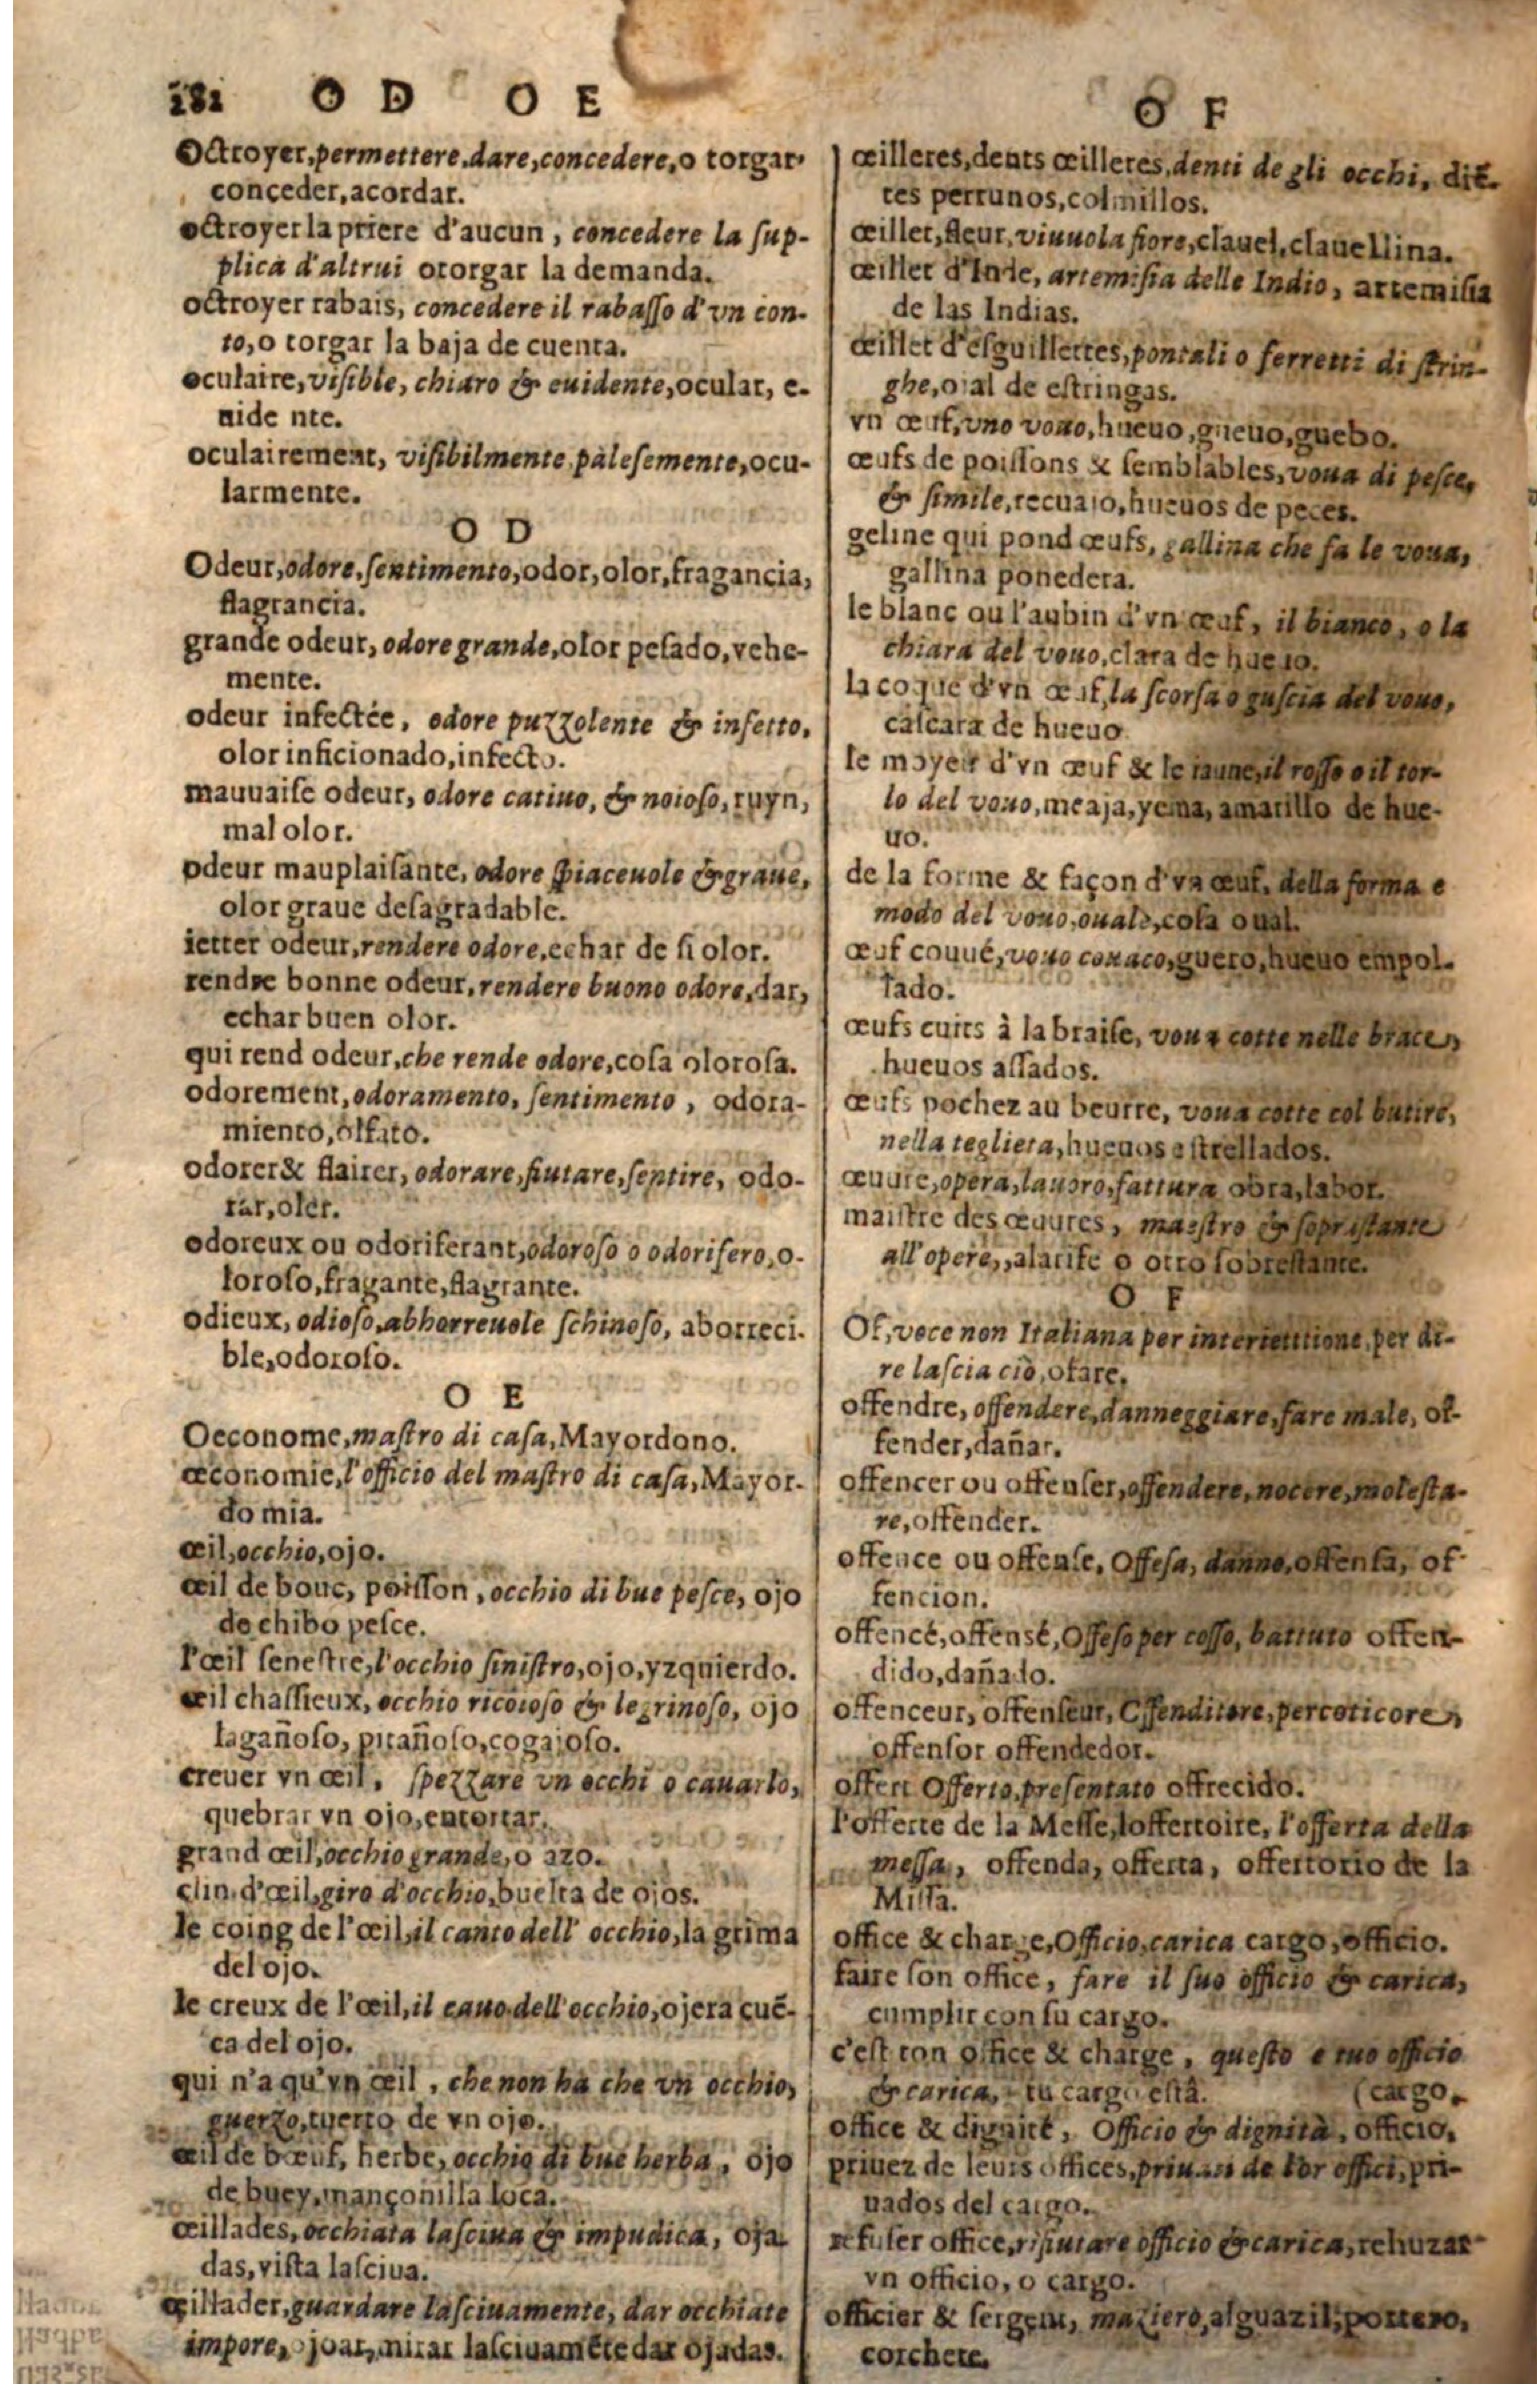 282 O D O E
Octroyer, permettere, dare, concedere, o torgar,
conceder, acordar.
octroyer la priere d'aucun, concedere la sup-
plica d'altrui otorgar la demanda.
octroyer rabais, concedere il rabaſſo d'vn con-
to, o torgar la baja de cuenta.
oculaire, viſible, chiaro & euidente, ocular, e-
uide nte.
oculairement, viſibilmente, paleſemente, ocu-
larmente.
O D
Odeur, odore, ſentimento, odor, olor, fragancia,
flagrancia.
grande odeur, odore grande, olor peſado, vehe-
mente.
odeur infectée, odore puzzolente & infetto,
olor inficionado, infecto.
mauuaiſe odeur, odore catiuo, & noioſo, ruyn,
mal olor.
odeur mauplaiſante, odore ſpiaceuole & graue,
olor graue deſagradable.
ietter odeur, rendere odore, echar de ſi olor.
rendre bonne odeur, rendere buono odore, dar,
echar buen olor.
qui rend odeur, che rende odore, coſa oloroſa.
odorement, odoramento, ſentimento, odora-
miento, olfato.
odorer & flairer, odorare, fiutare, ſentire, odo-
rar, oler.
odoreux ou odoriferant, odoroſo o odorifero, o-
loroſo, fragante, flagrante.
odieux, odioſo, abhorreuole ſchinoſo, aborreci-
ble, odoroſo.
O E
Oeconome, maſtro di caſa, Mayordono.
œconomie, l'officio del maſtro di caſa, Mayor-
do mia.
œil, occhio, ojo.
œil de bouc, poiſſon, occhio di bue peſce, ojo
de chibo peſce.
l'œil ſeneſtre, l'occhio ſiniſtro, ojo, yzquierdo.
œil chaſſieux, occhio ricoioſo & legrinoſo, ojo
lagañoſo, pitañoſo, cogajoſo.
creuer vn œil, ſpezzare vn occhi o cauarlo,
quebrar vn ojo, entortar.
grand œil, occhio grande, o azo.
clin d'œil, giro d'occhio, buelta de ojos.
le coing de l'œil, il canto dell' occhio, la grima
del ojo.
le creux de l'œil, il cauo dell'occhio, ojera cuē-
ca del ojo.
qui n'a qu'vn œil, che non ha che vn occhio,
guerzo, tuerto de vn ojo.
œil de bœuf, herbe, occhio di bue herba, ojo
de buey, mançonilla loca.
œillades, occhiata laſciua & impudica, oja-
das, viſta laſciua.
œillader, guardare laſciuamente, dar occhiate
impore, ojoar, mirar laſciuamēte dar ojadas.
O F
œilleres, dents œilleres, denti de gli occhi, diē-
tes perrunos, colmillos.
œillet, fleur, viuuola fiore, clauel, clauellina.
œillet d'Inde, artemiſia delle Indio, artemiſia
de las Indias.
œillet d'eſguillettes, pontali o ferretti di ſtrin-
ghe, ojal de eſtringas.
vn œuf, vno vouo, hueuo, gueuo, guebo.
œufs de poiſſons & ſemblables, voua di peſce,
& ſimile, recuajo, hueuos de peces.
geline qui pond œufs, gallina che fa le voua,
gallina ponedera.
le blanc ou l'aubin d'vn œuf, il bianco, o la
chiara del vouo, clara de hueuo.
la coque d'vn œuf, la ſcorſa o guſcia del vouo,
caſcara de hueuo
le moyeu d'vn œuf & le iaune, il roſſo o il tor-
lo del vouo, meaja, yema, amarillo de hue-
uo.
de la forme & façon d'vn œuf, della forma e
modo del vouo, ouale, coſa oual.
œuf couué, vouo couaco, guero, hueuo empol-
lado.
œufs cuits à la braiſe, voua cotte nelle brace,
hueuos aſſados.
œufs pochez au beurre, voua cotte col butire,
nella teglieta, hueuos eſtrellados.
œuure, opera, lauoro, fattura obra, labor.
maiſtre des œuures, maeſtro & ſopriſtante
all'opere,, alarife o otro ſobreſtante.
O F
Of, voce non Italiana per interiettione, per di-
re laſcia ciò, ofare.
offendre, offendere, danneggiare, fare male, of-
fender, dañar.
offencer ou offenſer, offendere, nocere, moleſta-
re, offender.
offence ou offenſe, Offeſa, danno, offenſa, of-
fencion.
offencé, offensé, Offeſo per coſſo, battuto offen-
dido, dañado.
offenceur, offenſeur, Offenditore, percoticore,
offenſor offendedor.
offert Offerto, preſentato offrecido.
l'offerte de la Meſſe, loffertoire, l'offerta della
meſſa, offenda, offerta, offertorio de la
Miſſa.
office & charge, Officio, carica cargo, officio.
faire ſon office, fare il ſuo officio & carica,
cumplir con ſu cargo.
c'eſt ton office & charge, queſto e tuo officio
& carica, tu cargo eſtâ. (cargo.
office & dignité, Officio & dignità, officio,
priuez de leurs offices, priuati de lor offici, pri-
uados del cargo.
refuſer office, rifiutare officio & carica, rehuzar
vn officio, o cargo.
officier & ſergent, maziero, alguazil, portero,
corchete.